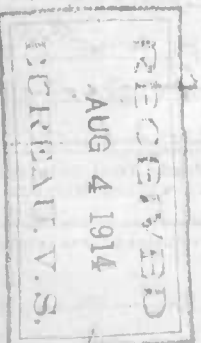 RECEIVED
AUG 4 1914
BUREAU. V. S.